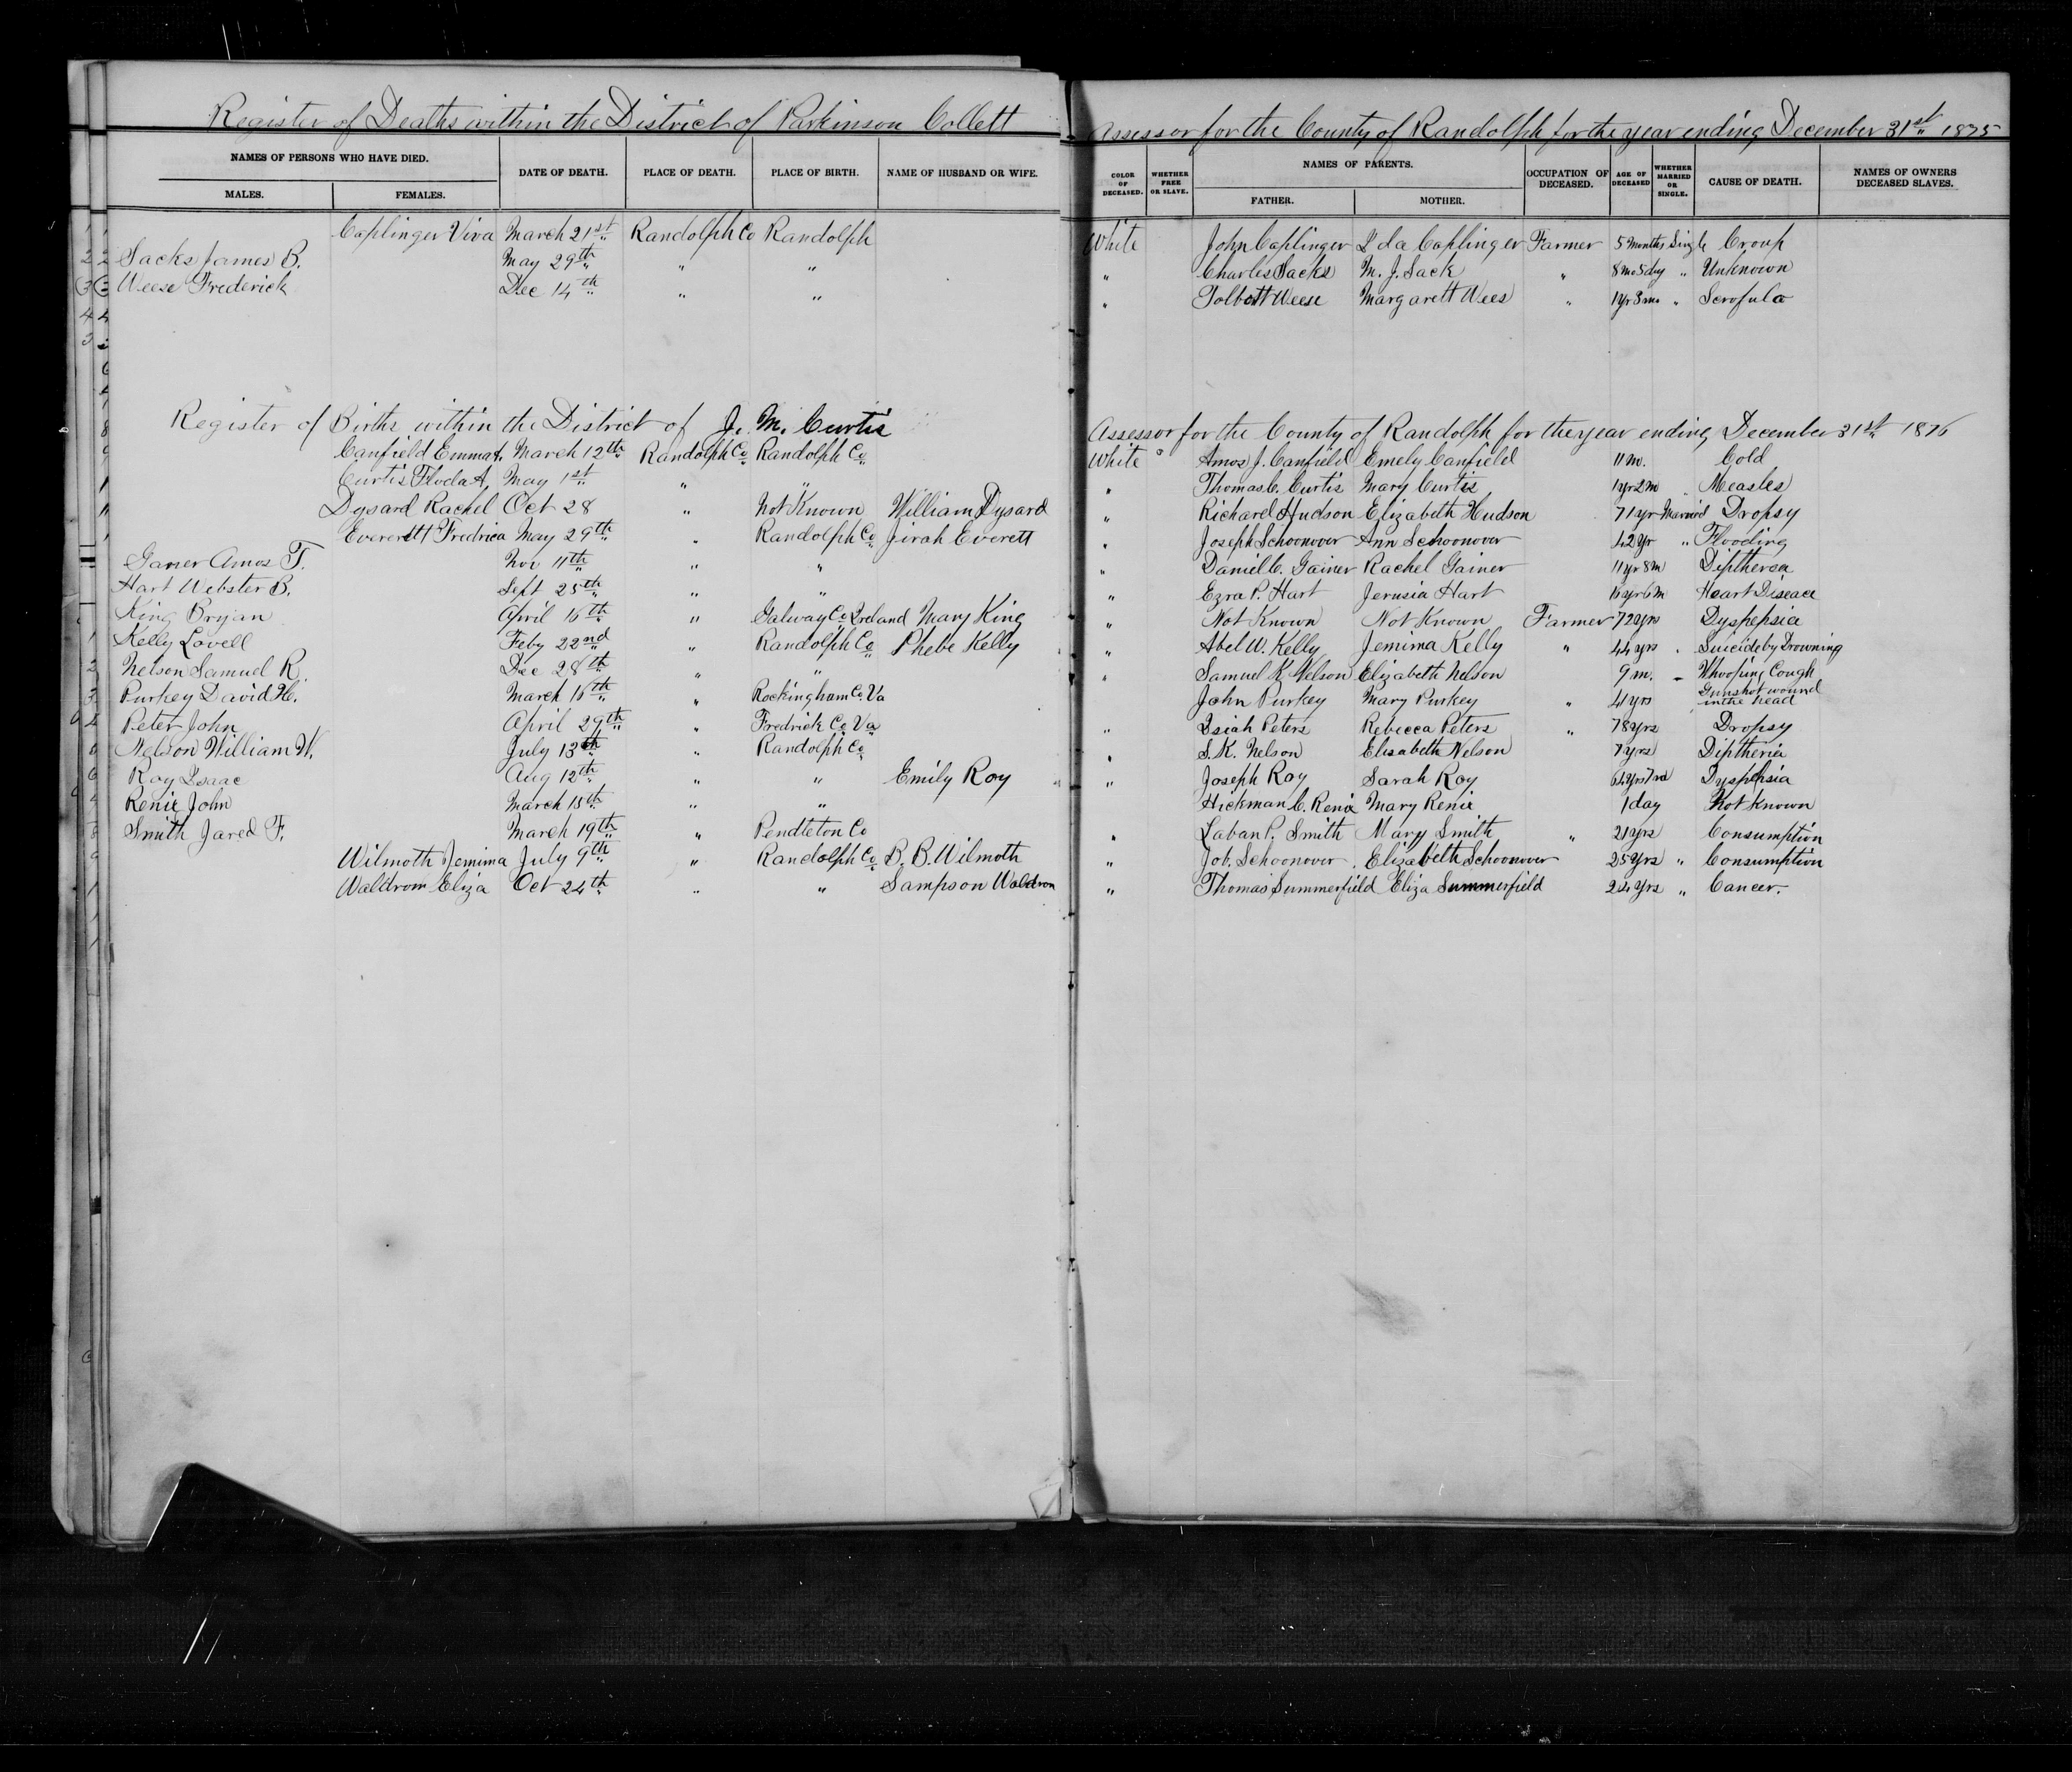 Register of Deaths within the District of Parkinson Collett Assessor for the County of Randolph for the year ending December 31st 1875
NAMES OF PERSONS WHO HAVE DIED. DATE OF DEATH. PLACE OF DEATH. PLACE OF BIRTH. NAME OF HUSBAND OR WIFE. COLOR OF DECEASED. WHETHER FREE OR SLAVE. NAMES OF PARENTS. OCCUPATION OF DECEASED. AGE OF DECEASED WHETHER MARRIED OR SINGLE. CAUSE OF DEATH. NAMES OF OWNERS DECEASED SLAVES.
MALES. FEMALES. FATHER. MOTHER.
Caplinger Viva March 21st Randolph Co Randolph White John Caplinger Ida Caplinger Farmer 5 Months Single Croup
Sacks James B. May 29th " " " Charles Sacks M. J. Sack " 8 mo 5 day " Unknown
Weese Frederick Dec 14th " " " Tolbott Weese Margarett Wees " 1yr 3mo " Scrofula
Register of Births within the District of J. M. Curtis Assessor for the County of Randolph for the year ending December 31st 1876
Canfield Emma March 12th Randolph Co. Randolph Co. White " Amos J. Canfield Emely Canfield 11 m. Cold
Curtis Floda A, May 1st " " " Thomas C. Curtis Mary Curtis 1yr 2m " Measles
Dysard Rachel Oct 28 " Not Known William Dysard " Richard Hudson Elizabeth Hudson 71yr Married Dropsy
Evereett Fredrica May 29th " Randolph Co. Jirah Everett " Joseph Schoonover Ann Schoonover 42yr " Flooding
Ganer Amos T. Nov 11th " " " Daniel C. Gainer Rachel Gainer 11yr 8m Diptherea
Hart Webster B. Sept 25th " " " Ezra P. Hart Jerusia Hart 16yr 6m Heart Disease
King Bryan April 16th " Galway Co Ireland Mary King " Not Known Not Known Farmer 72yrs Dyspepsia
Kelly Lovell Feby 22nd " Randolph Co. Phebe Kelly " Abel W. Kelly Jemima Kelly " 44yrs " Suicide by Drowning
Nelson Samuel R. Dec 28th " " " Samuel K. Nelson Elizabeth Nelson 9 m. Whooping Cough
Purkey David H. March 16th " Rockingham Co. Va John Purkey Mary Purkey " 41yrs Gunshot wound in the head
Peter John April 29th " Fredrick Co. Va " Isiah Peters Rebecca Peters " 78yrs Dropsy
Nelson William W. July 13th " Randolph Co " S. K. Nelson Elisabeth Nelson 7yrs Diptheria
Roy Isaac Aug 12th " " Emily Roy " Joseph Roy Sarah Roy Dyspepsia
Renix John March 15th " " Hickman C. Renix Mary Renix 1 day Not Known
Smith Jared F. March 19th " Pendleton Co " Laban P. Smith Mary Smith " 21yrs Consumption
Wilmoth Jemima July 9th " Randolph Co. B. B. Wilmoth " Job. Schoonover Elizabeth Schoonover 25yrs " Consumption
Waldrom Eliza Oct 24th " " Sampson Waldron " Thomas Summerfield Eliza Summerfield 24yrs " Cancer.